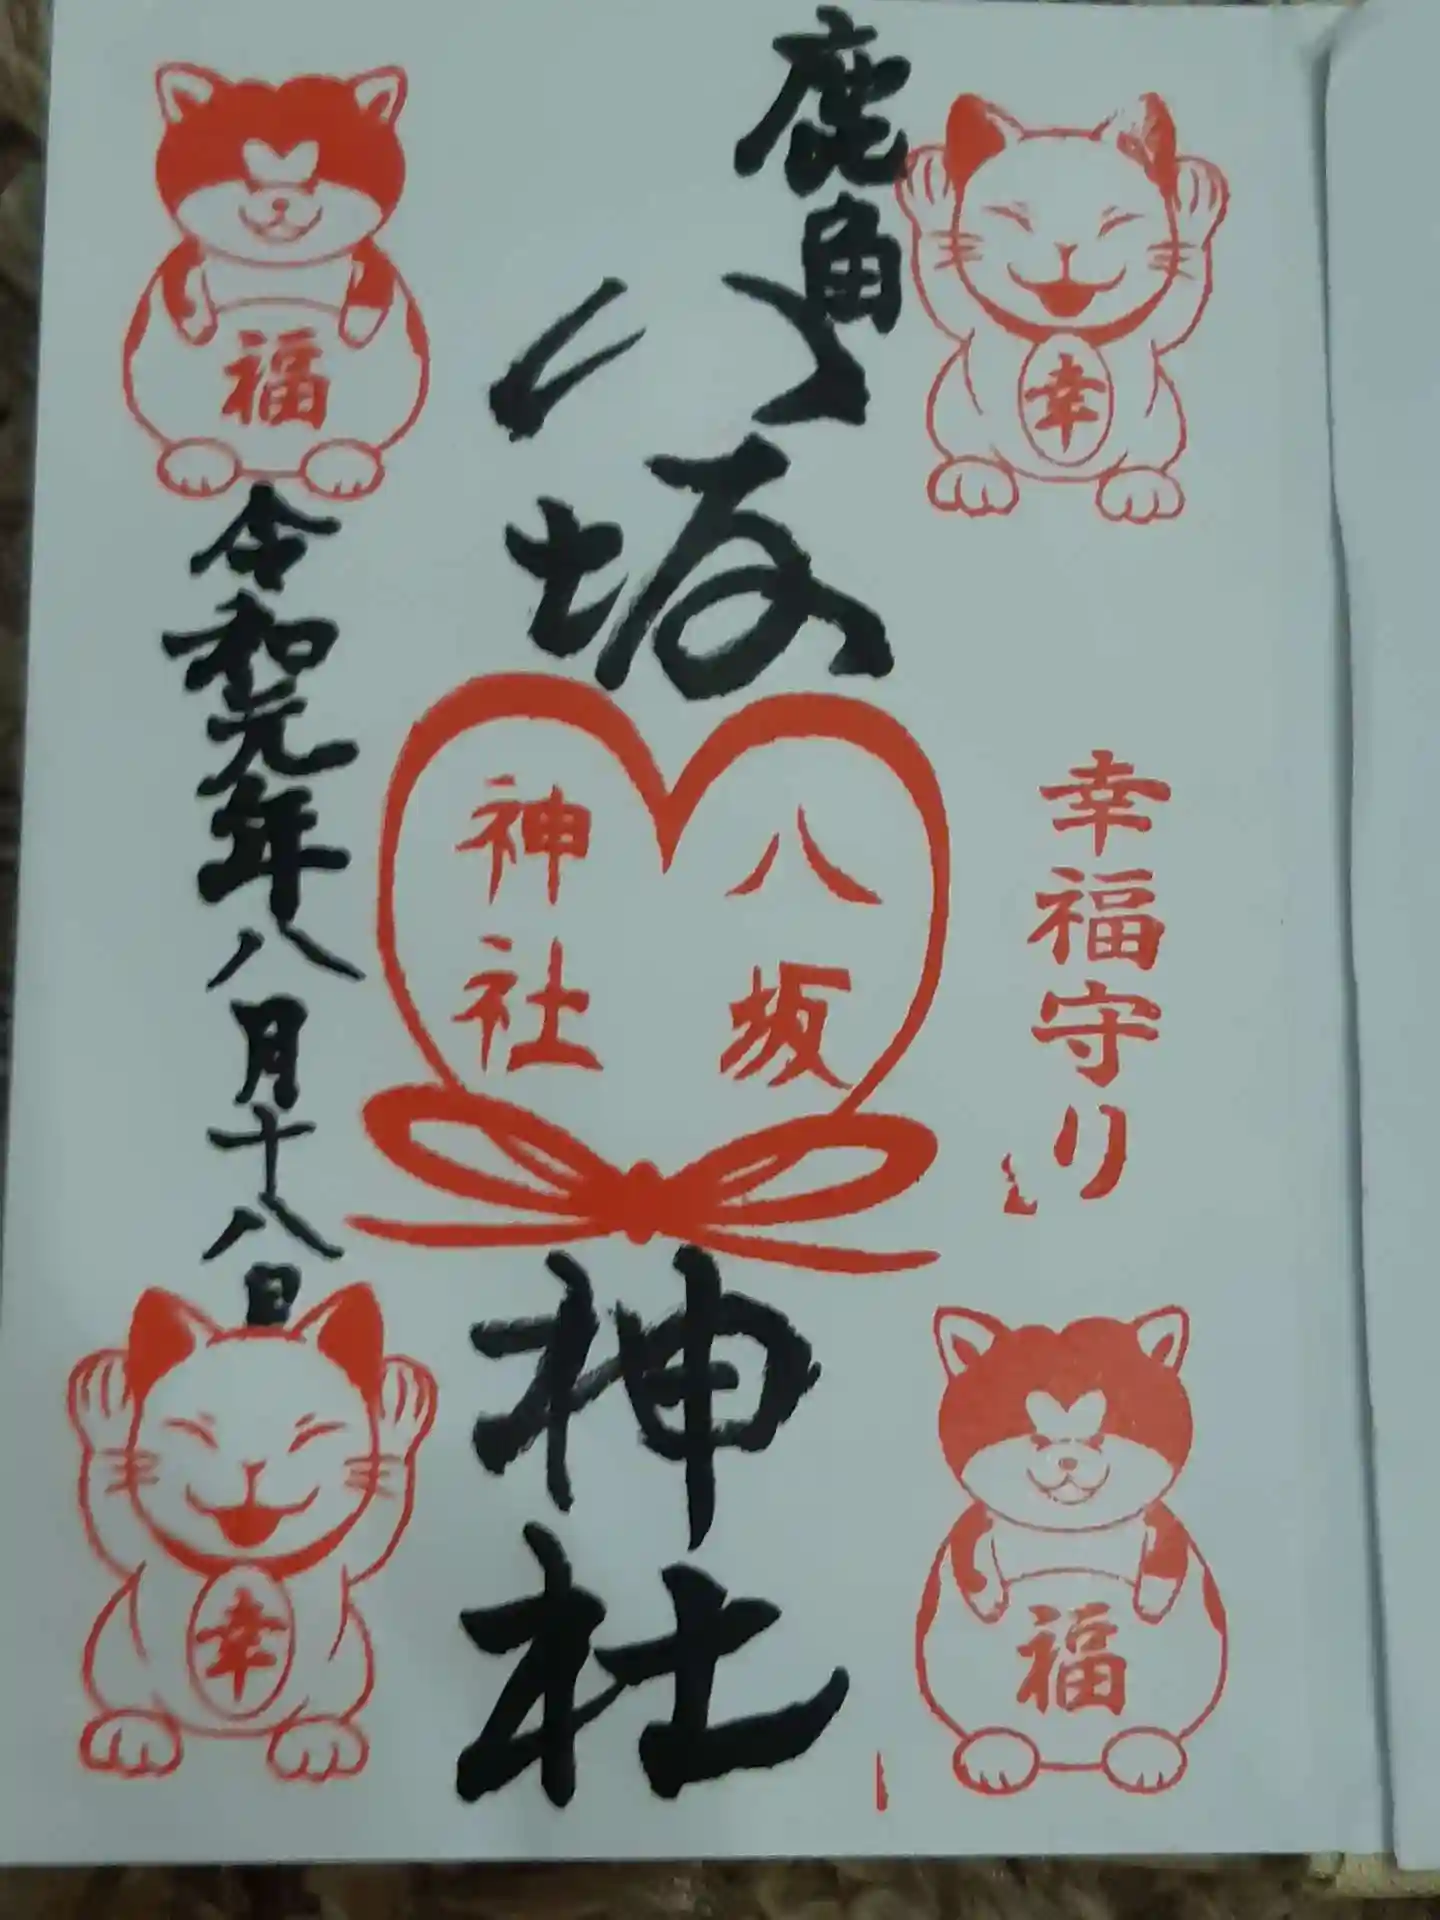 幸
鹿角
八坂神社
幸福守り
八坂
神社
福
令和元年八月十八日
幸
福